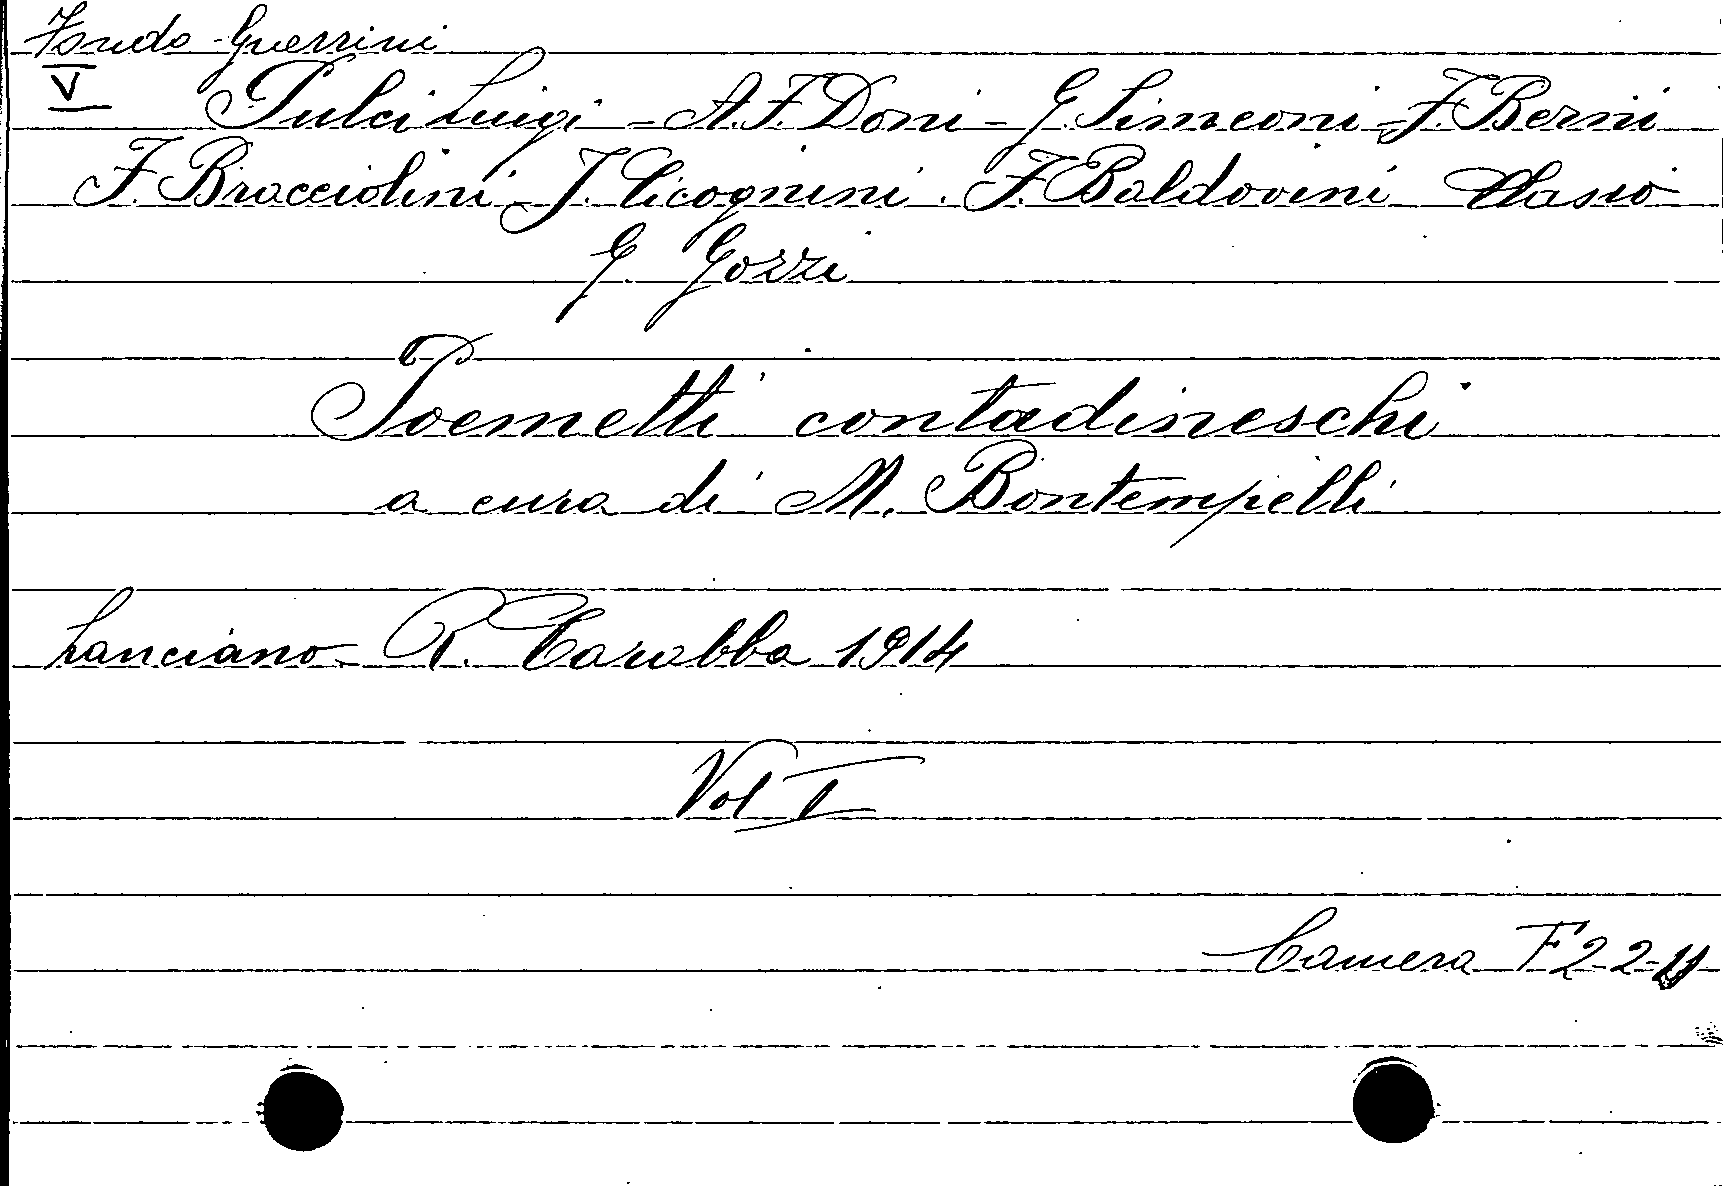 Fondo Guerrini
V
Pulci Luigi - A.F. Doni - G. Simeoni - F. Berni
F. Bracciolini - J. Cicognini. F. Baldovini Clasio
G. Gozzi
Poemetti contadineschi
a cura di M. Bontempelli
Lanciano R. Carabba 1914
Vol I
Camera F 2-2-11